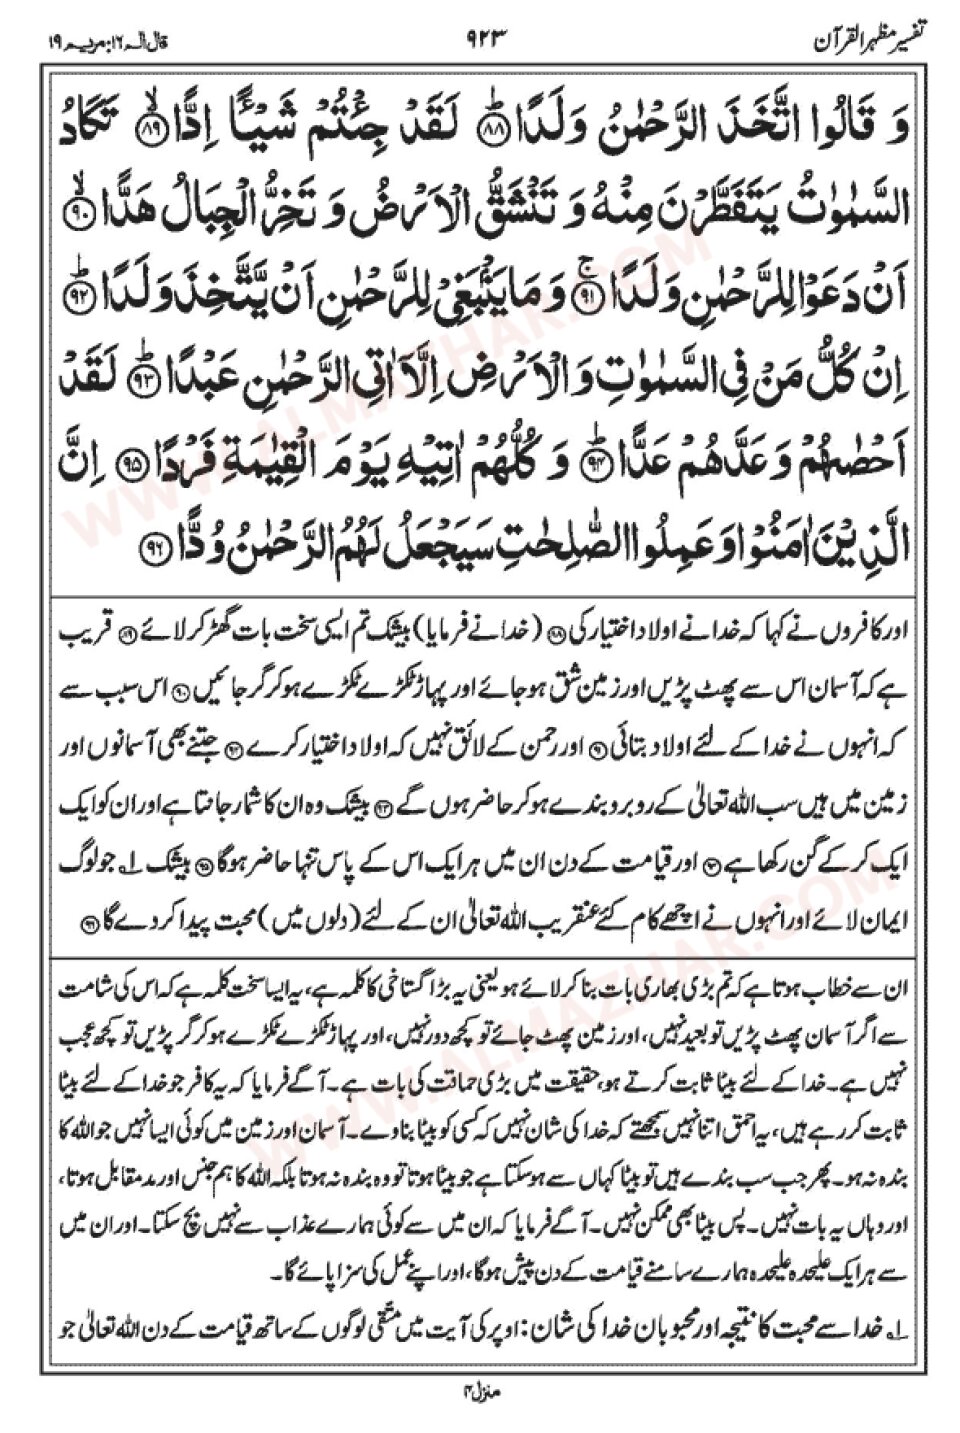 تفسیر مظہر القرآن ۹۲۳ قال الم ۱۶: مریم ۱۹
وَ قَالُوا اتَّخَذَ الرَّحْمٰنُ وَلَدًا ﴿۸۸﴾ لَقَدْ جِئْتُمْ شَیْـًٔا اِدًّا ﴿۸۹﴾ تَکَادُ
السَّمٰوٰتُ یَتَفَطَّرْنَ مِنْهُ وَ تَنْشَقُّ الْاَرْضُ وَ تَخِرُّ الْجِبَالُ هَدًّا ﴿۹۰﴾
اَنْ دَعَوْا لِلرَّحْمٰنِ وَلَدًا ﴿۹۱﴾ وَ مَا یَنْۢبَغِیْ لِلرَّحْمٰنِ اَنْ یَّتَّخِذَ وَلَدًا ﴿۹۲﴾
اِنْ کُلُّ مَنْ فِی السَّمٰوٰتِ وَ الْاَرْضِ اِلَّاۤ اٰتِی الرَّحْمٰنِ عَبْدًا ﴿۹۳﴾ لَقَدْ
اَحْصٰىهُمْ وَ عَدَّهُمْ عَدًّا ﴿۹۴﴾ وَ کُلُّهُمْ اٰتِیْهِ یَوْمَ الْقِیٰمَةِ فَرْدًا ﴿۹۵﴾ اِنَّ
الَّذِیْنَ اٰمَنُوْا وَ عَمِلُوا الصّٰلِحٰتِ سَیَجْعَلُ لَهُمُ الرَّحْمٰنُ وُدًّا ﴿۹۶﴾
اور کافروں نے کہا کہ خدا نے اولاد اختیار کی ﴿۸۸﴾ (خدا نے فرمایا) بیشک تم ایسی سخت بات گھڑ کر لائے ﴿۸۹﴾ قریب
ہے کہ آسمان اس سے پھٹ پڑیں اور زمین شق ہو جائے اور پہاڑ ٹکڑے ٹکڑے ہو کر گر جائیں ﴿۹۰﴾ اس سبب سے
کہ انہوں نے خدا کے لئے اولاد بتائی ﴿۹۱﴾ اور رحمن کے لائق نہیں کہ اولاد اختیار کرے ﴿۹۲﴾ جتنے بھی آسمانوں اور
زمین میں ہیں سب اللہ تعالیٰ کے روبرو بندے ہو کر حاضر ہوں گے ﴿۹۳﴾ بیشک وہ ان کا شمار جانتا ہے اور ان کو ایک
ایک کر کے گن رکھا ہے ﴿۹۴﴾ اور قیامت کے دن ان میں ہر ایک اس کے پاس تنہا حاضر ہوگا ﴿۹۵﴾ بیشک ۱؎ جو لوگ
ایمان لائے اور انہوں نے اچھے کام کئے عنقریب اللہ تعالیٰ ان کے لئے (دلوں میں) محبت پیدا کر دے گا ﴿۹۶﴾
ان سے خطاب ہوتا ہے کہ تم بڑی بھاری بات بنا کر لائے ہو یعنی یہ بڑا گستاخی کا کلمہ ہے، یہ ایسا سخت کلمہ ہے کہ اس کی شامت
سے اگر آسمان پھٹ پڑیں تو بعید نہیں، اور زمین پھٹ جائے تو کچھ دور نہیں، اور پہاڑ ٹکڑے ٹکڑے ہو کر گر پڑیں تو کچھ عجب
نہیں ہے۔ خدا کے لئے بیٹا ثابت کرتے ہو، حقیقت میں بڑی حماقت کی بات ہے۔ آگے فرمایا کہ یہ کافر جو خدا کے لئے بیٹا
ثابت کر رہے ہیں، یہ احمق اتنا نہیں سمجھتے کہ خدا کی شان نہیں کہ کسی کو بیٹا بناوے۔ آسمان اور زمین میں کوئی ایسا نہیں جو اللہ کا
بندہ نہ ہو۔ پھر جب سب بندے ہیں تو بیٹا کہاں سے ہو سکتا ہے جو بیٹا ہوتا تو وہ بندہ نہ ہوتا بلکہ اللہ کا ہم جنس اور مد مقابل ہوتا،
اور وہاں یہ بات نہیں۔ پس بیٹا بھی ممکن نہیں۔ آگے فرمایا کہ ان میں سے کوئی ہمارے عذاب سے نہیں بچ سکتا۔ اور ان میں
سے ہر ایک علیحدہ علیحدہ ہمارے سامنے قیامت کے دن پیش ہوگا، اور اپنے عمل کی سزا پائے گا۔
۱؎ خدا سے محبت کا نتیجہ اور محبوبان خدا کی شان: اوپر کی آیت میں متّقی لوگوں کے ساتھ قیامت کے دن اللہ تعالیٰ جو
منزل۴
WWW.ALMAZHAR.COM
WWW.ALMAZHAR.COM